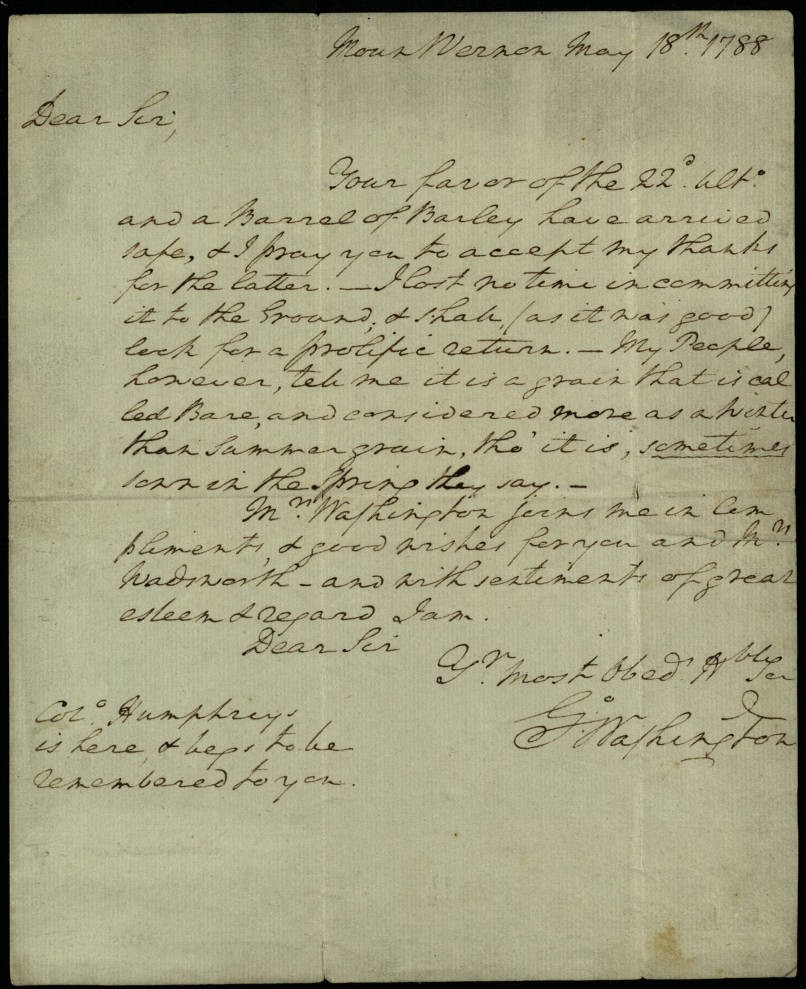 Moun Vernon May 18th. 1788
Dear Sir,
Your favor of the 22d. Ulto.
and a Barrel of Barley have arrived
safe, & I pray you to accept my thanks
for the latter. — I lost no time in committing
it to the Ground; & shall, (as it was good)
look for a prolific return. — My People,
however, tell me it is a grain that is cal
led Bare, and considered more as a Winter
than Summer grain, tho' it is, sometimes
sown in the Spring they say. —
Mrs. Washington joins me in Com
pliments, & good wishes for you and Mrs.
Wadsworth – and with sentiments of great
esteem & regard I am.
Dear Sir
Yr. most Obed. Hble Ser
Go. Washington
Colo. Humphreys
is here, & begs to be
remembered to you.